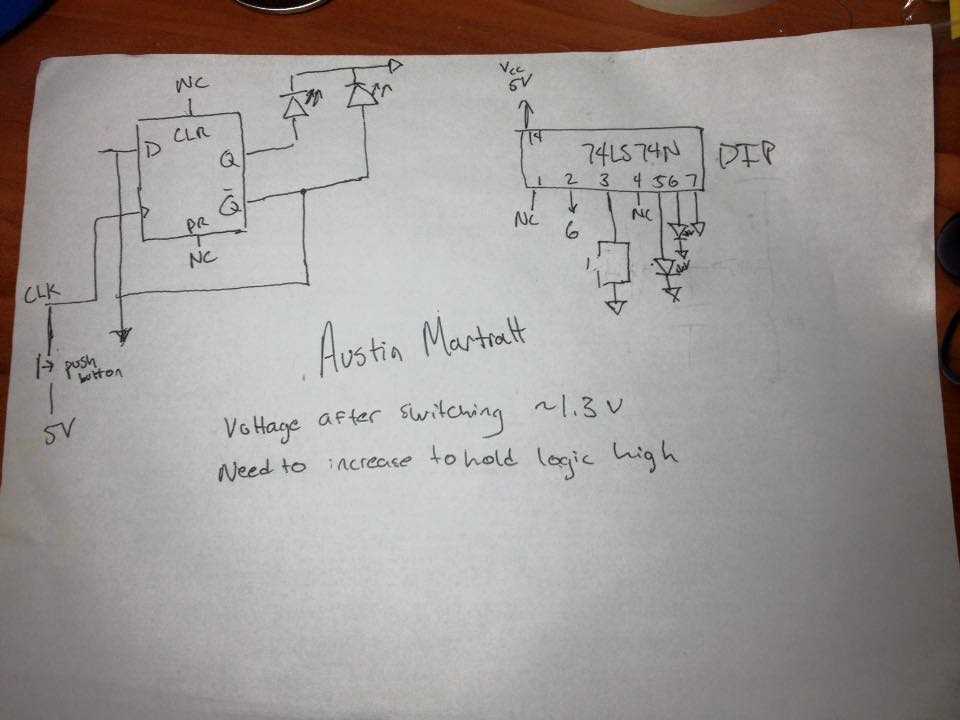 NC
CLR
D
Q
Q̅
PR
NC
CLK
push
button
5V
Vcc
5V
14
74LS74N
DIP
1 2 3 4 5 6 7
NC
6
NC
Austin Martratt
Voltage after switching ~1.3 V
Need to increase to hold logic high